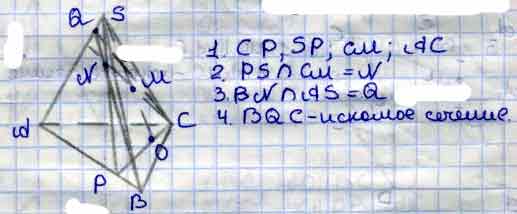 Q S
N M
A C
O
P
B
1. CP; SP; CM; AC
2. PS∩CM = N
3. BN∩AS = Q
4. BQC – искомое сечение.